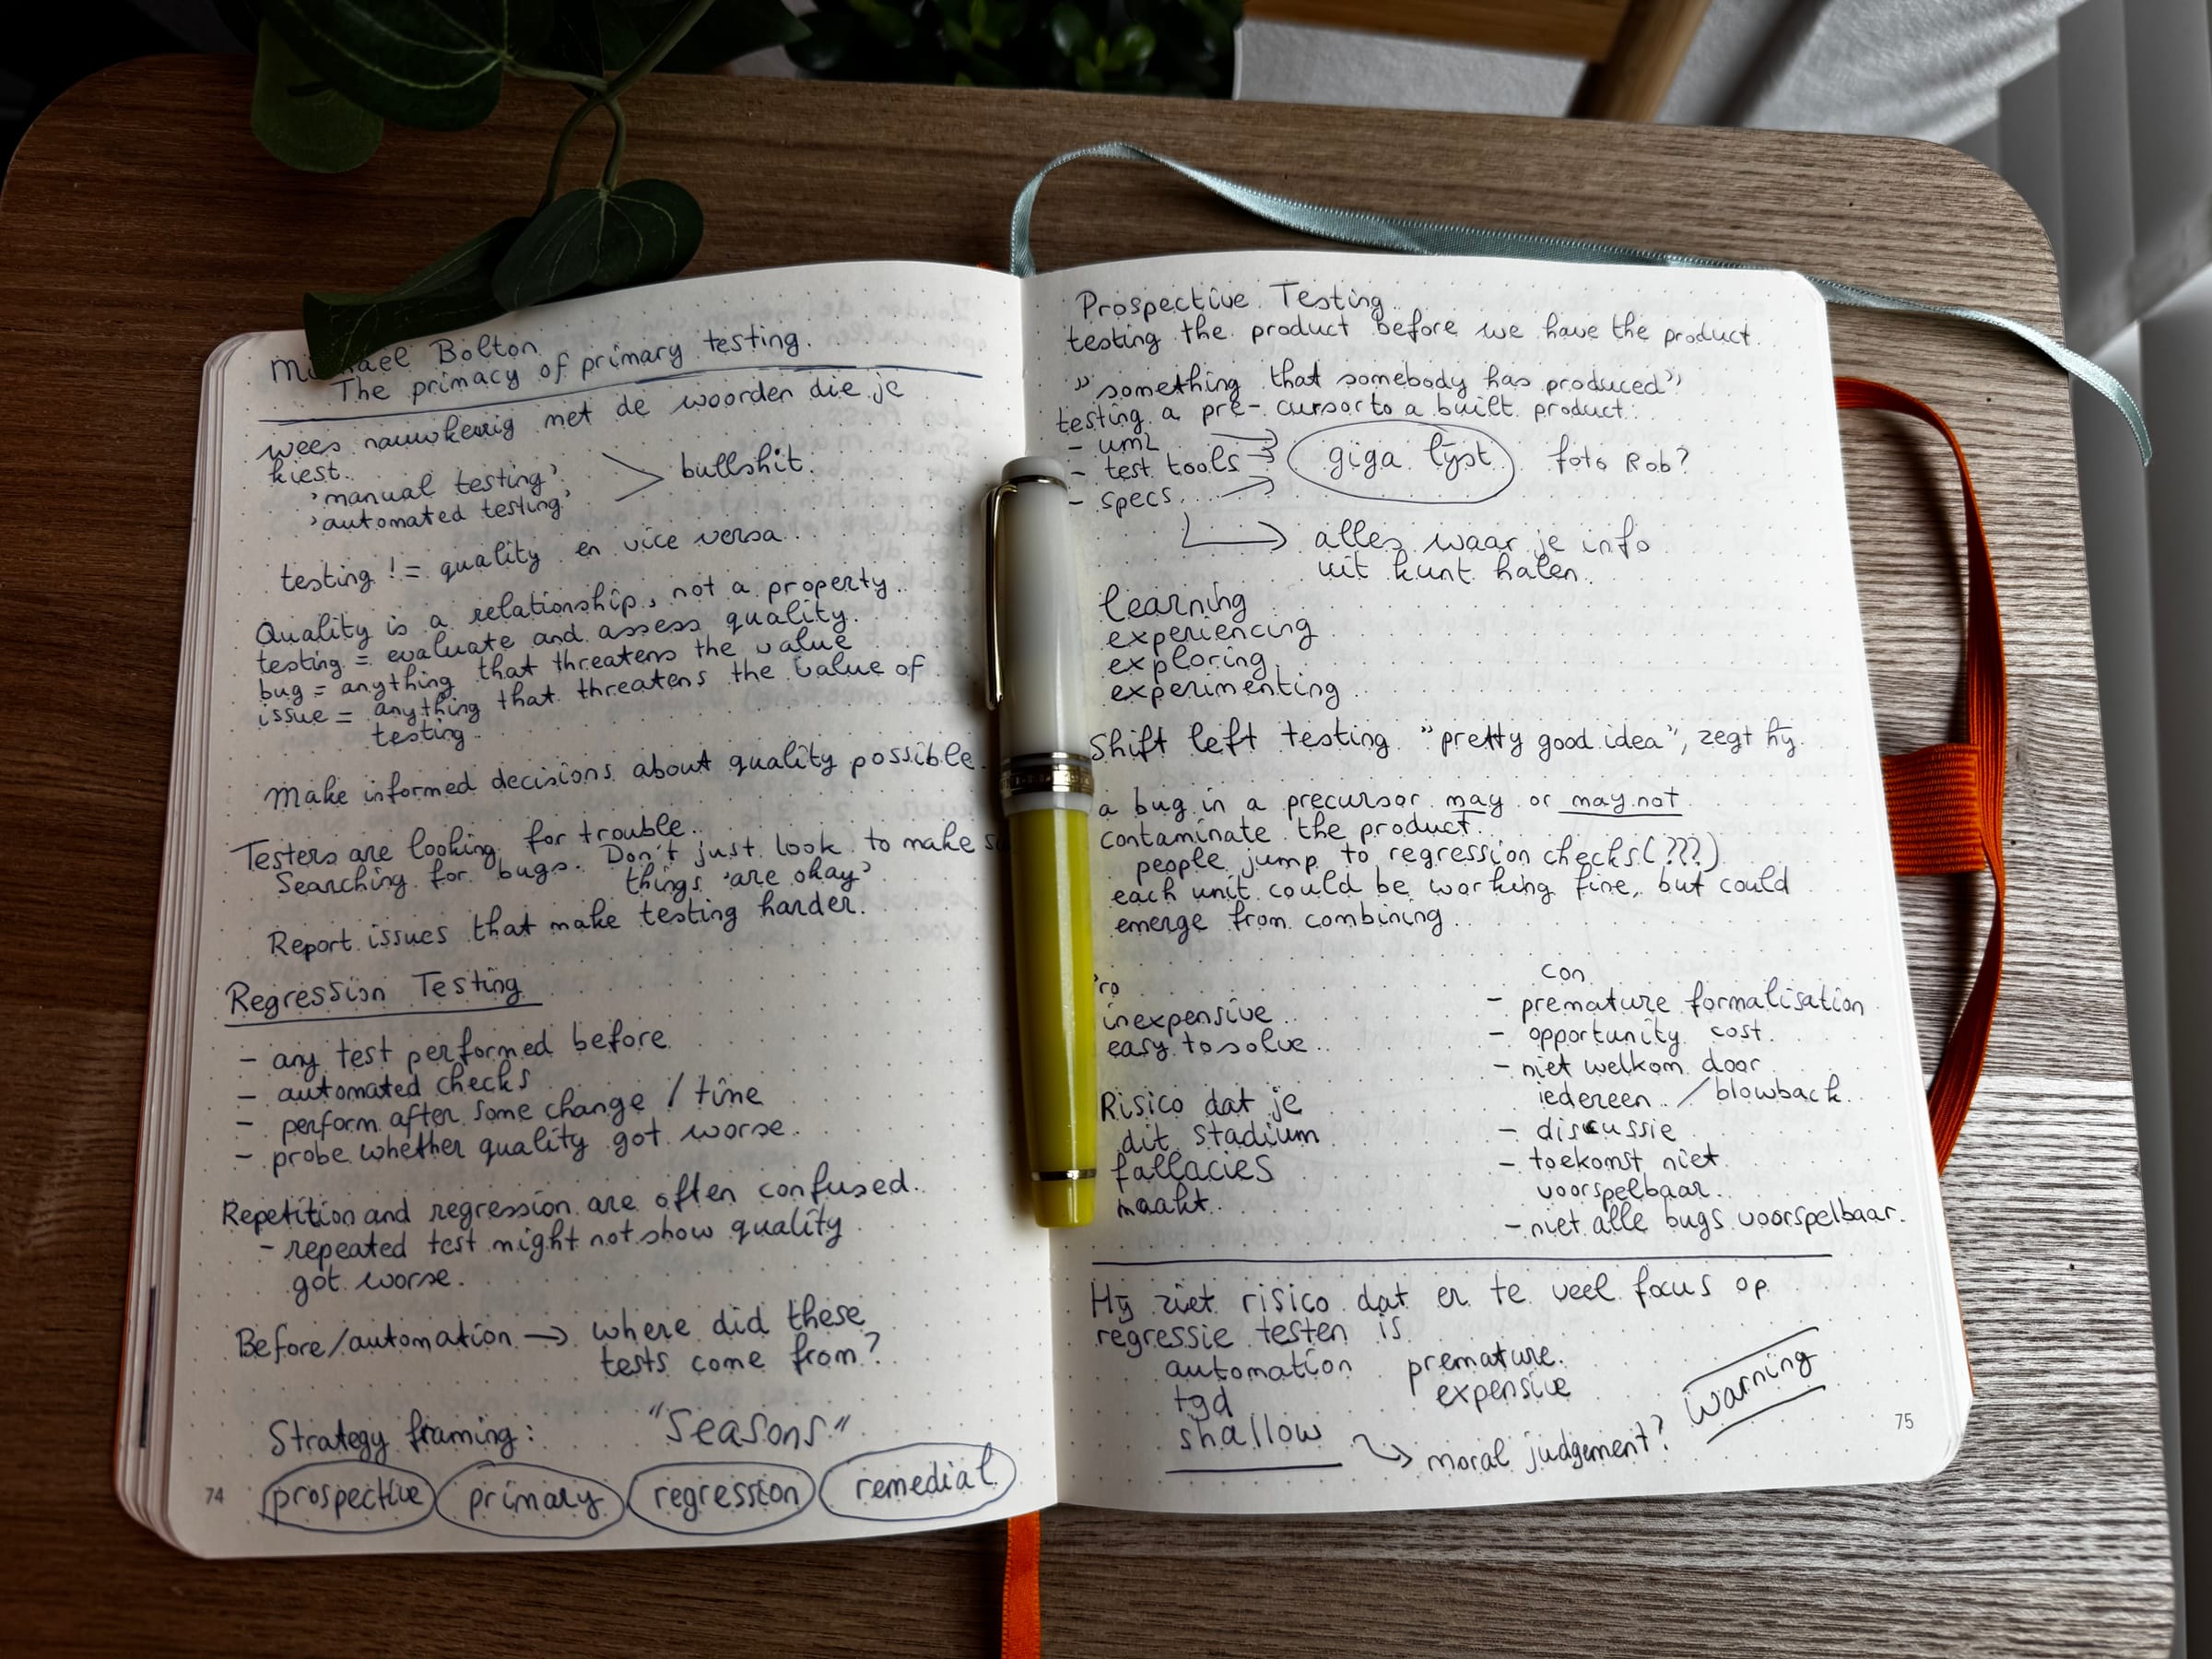 Michael Bolton
The primacy of primary testing.
wees nauwkeurig met de woorden die je
kiest.
'manual testing'
'automated testing'
bullshit.
testing != quality en vice versa.
Quality is a relationship, not a property.
testing = evaluate and assess quality.
bug = anything that threatens the value
issue = anything that threatens the value of
testing.
Make informed decisions about quality possible.
Testers are looking for trouble.
Searching for bugs. Don't just look to make
things 'are okay'
Report issues that make testing harder.
Regression Testing
- any test performed before
- automated checks
- perform after some change / time
- probe whether quality got worse.
Repetition and regression are often confused.
- repeated test might not show quality
got worse.
Before/automation → where did these
tests come from?
Strategy framing: "Seasons"
prospective primary regression remedial
74
Prospective Testing
testing the product before we have the product.
"something that somebody has produced"
testing a pre-cursor to a built product:
- uml
- test tools
- specs
giga lijst foto Rob?
alles waar je info
uit kunt halen.
learning
experiencing
exploring
experimenting
Shift left testing "pretty good idea", zegt hij.
a bug in a precursor may or may not
contaminate the product.
people jump to regression checks (???)
each unit could be working fine, but could
emerge from combining
ro
inexpensive
easy to solve
Risico dat je
dit stadium
fallacies
maakt.
con
- premature formalisation
- opportunity cost.
- niet welkom door
iedereen / blowback.
- discussie
- toekomst niet
voorspelbaar.
- niet alle bugs voorspelbaar.
Hij ziet risico dat er te veel focus op
regressie testen is
automation premature.
tgd expensive
shallow → moral judgement? warning
75